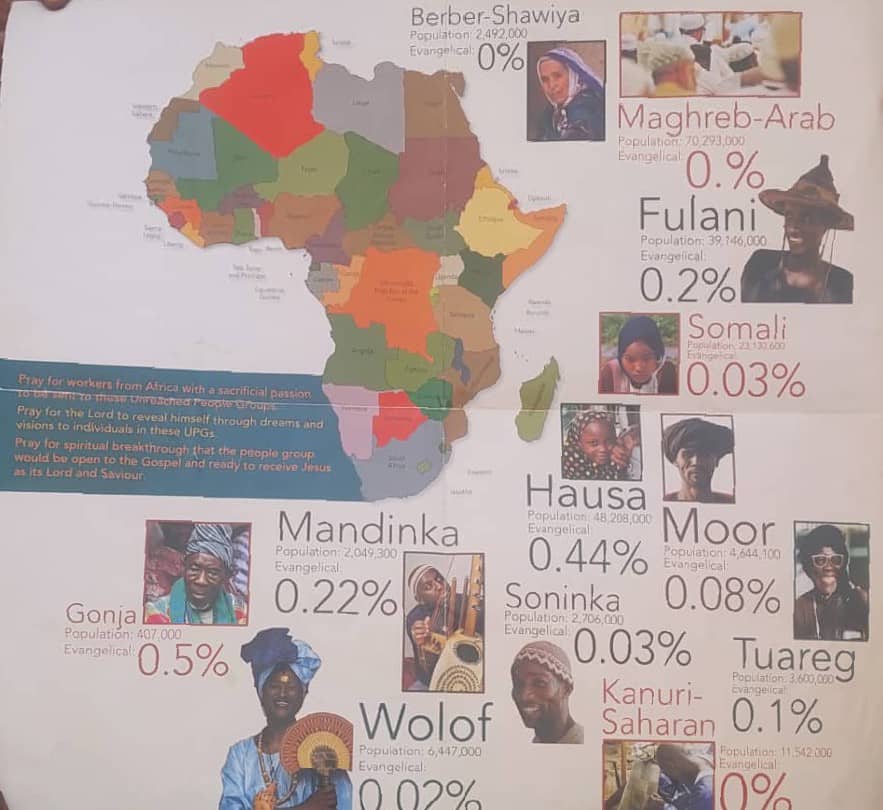 Berber-Shawiya
Population: 2,492,000
Evangelical: 0%
Maghreb-Arab
Population: 70,293,000
Evangelical: 0.%
Fulani
Population: 39,146,000
Evangelical:
0.2%
Somali
Population: 23,130,600
Evangelical:
0.03%
Tunisia
Libya
Niger
Ethiopia
Djibouti
Uganda
Angola
South
Africa
Pray for workers from Africa with a sacrificial passion
to be sent to these Unreached People Groups.
Pray for the Lord to reveal himself through dreams and
visions to individuals in these UPGs.
Pray for spiritual breakthrough that the people group
would be open to the Gospel and ready to receive Jesus
as its Lord and Saviour.
Hausa
Population: 48,208,000
Evangelical:
0.44%
Moor
Population: 4,644,100
Evangelical:
0.08%
Mandinka
Population: 2,049,300
Evangelical:
0.22%
Gonja
Population: 407,000
Evangelical: 0.5%
Soninka
Population: 2,706,000
Evangelical:
0.03%
Tuareg
Population: 3,600,000
Evangelical:
0.1%
Wolof
Population: 6,447,000
Evangelical:
0.02%
Kanuri-
Saharan
Population: 11,542,000
Evangelical:
0%